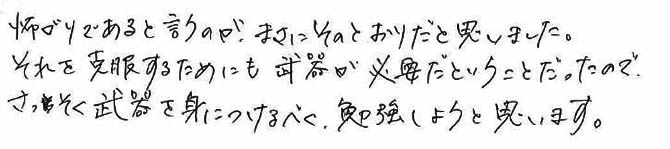 怖がりであると言うのが、まさにそのとおりだと思いました。
それを克服するためにも武器が必要だということだったので、
さっそく武器を身につけるべく、勉強しようと思います。